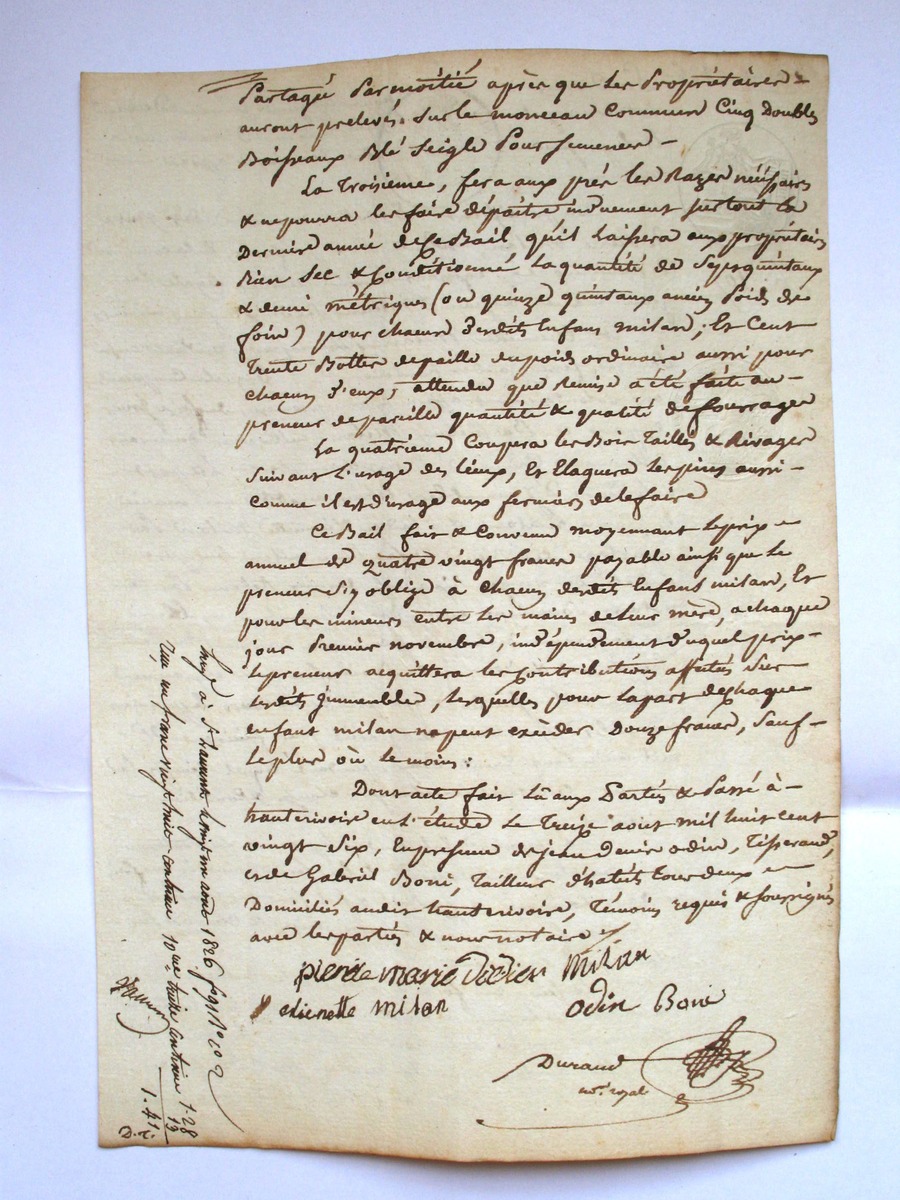 Partagé Par moitié après que les Propriétaires
auront prelevés sur le monceau commun Cinq Doubles
Boisseaux Blé seigle Pour semence -
La Troisieme, fera aux prés les Razes néćssaires
& ne pourra les faire dépaitre
Derniere année de Ce Bail qu'il Laissera aux propriétaires
Bien sec & Conditionné La quantité de Sept quintaux
& demi métriques (ou quinze quintaux ancien Poids de
foin) pour chacun desdits Enfans milan ; Et Cent
Trente Bottes de paille du poids ordinaire aussi pour
chacun d'eux, attendu que Remise a été faite au -
preneur de pareille quantité & qualité de fourrages
La quatrieme Coupera les Bois Taillis & Rivages
Suivant l'usage des lieux, Et Elaguera les pins aussi -
comme il est d'usage aux fermiers de le faire
Ce Bail fait & Convenu moyennant le prix
annuel de quatre vingt francs payable ainsi que le
preneur s'y oblige à chacun desdits Enfans milan, Et
pour les mineurs entre les mains de leur mère, a chaque
jour Premier novembre, indépendament duquel prix -
le preneur acquittera les Contributions affectés sur
lesdits Immeuble, lesquelles pour la part de chaque
enfant milan ne peut excéder Douze francs, sauf -
le plus où le moins :
Dont acte fait Lû aux Parties & Passé à -
hauterivoire en l'étude Le Treize aout mil huit cent
vingt Six, En presence de jean Denis odin, Tisserand,
et de Gabriel Boni, Tailleur d'habits tous deux
Domiciliés audit hauterivoire, Témoins requis & soussignés
avec les parties & nous notaire
pierre marie Didier Milan
etienette milan odin Boni
Durand
not. royal
à St Laurent 1826
un franc vingt huit centimes 10me treize centimes 1.28
13
1.41
D. T.